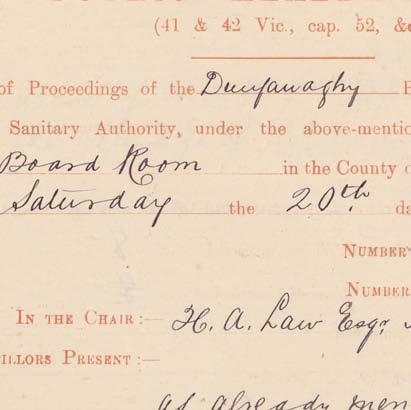 (41 & 42 Vic., cap. 52, &
of Proceedings of the Dunfanaghy
Sanitary Authority, under the above-mentio
Board Room in the County o
Saturday the 20th. da
NUMBER
NUMBER
IN THE CHAIR:— H. A. Law Esqr.
ILLORS PRESENT:—
as already men